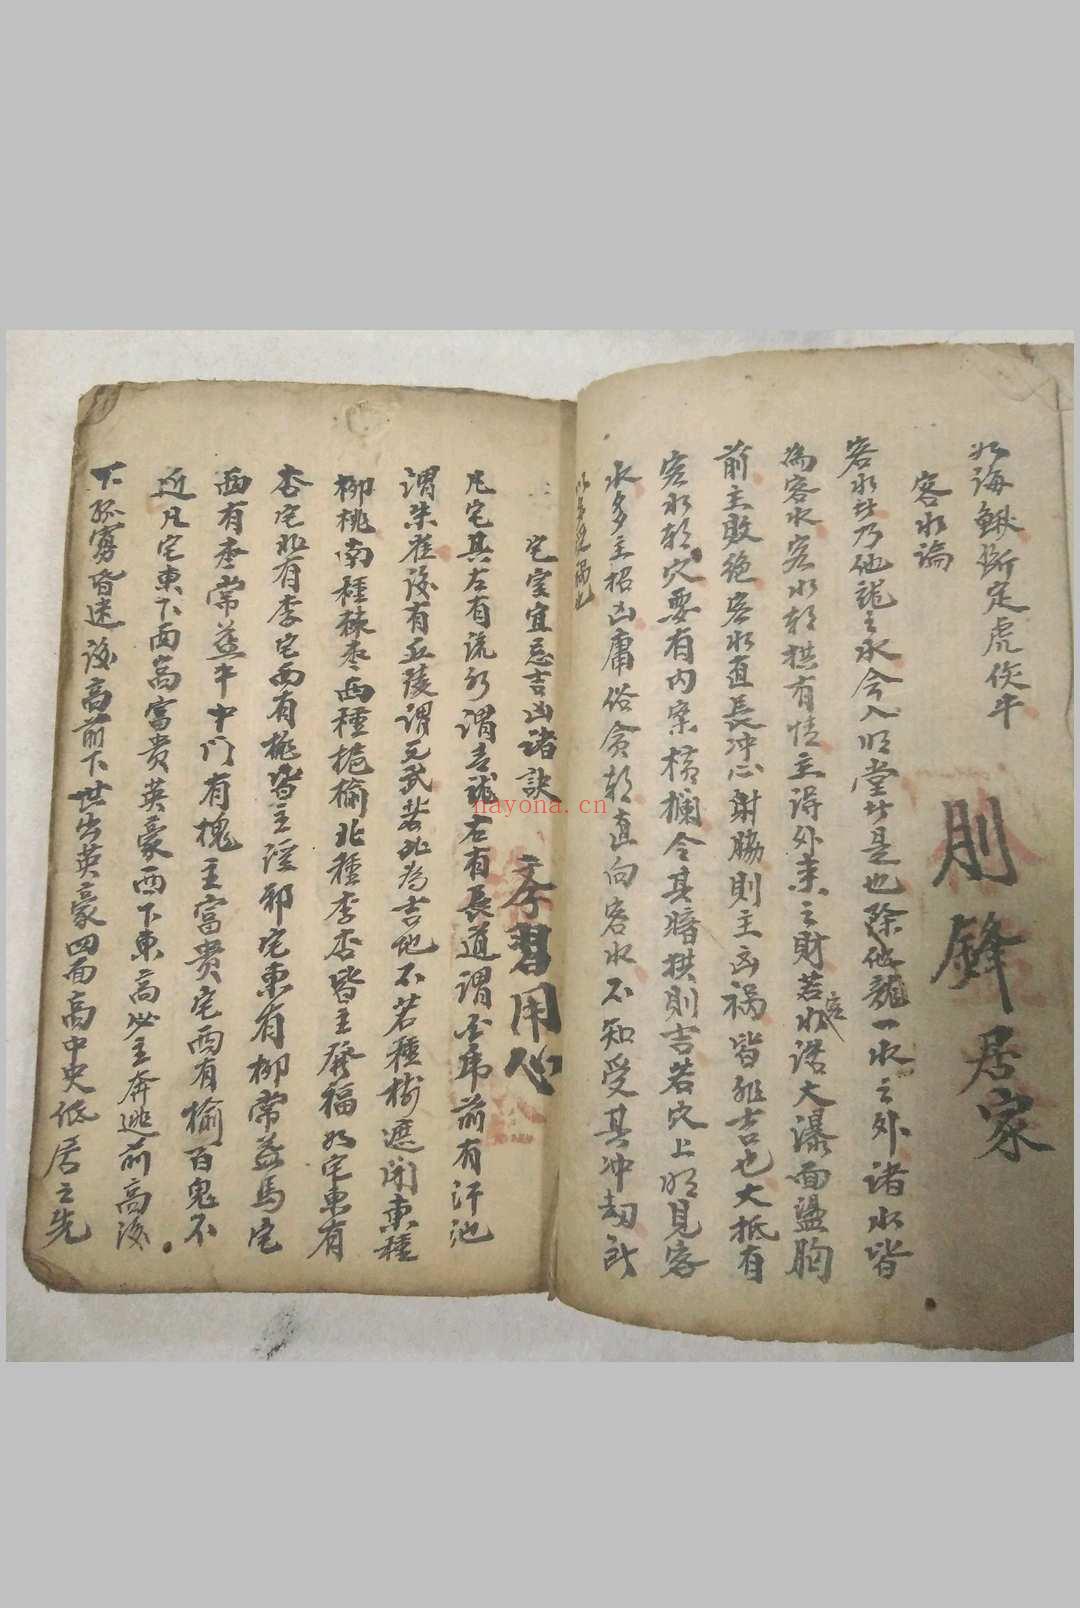 如海鰍斷定虎倐牛
則鋒居家
客水論
客水者乃他龍之水会入明堂者是也除他龍一水之外諸水皆
為客水客水朝拱有情主得外来之財若客水潑大瀑面盪胸
前主敗绝客水直長冲心射脇則主凶禍皆非吉也大抵有
客水朝穴要有内案横攔令其暗拱則吉若穴上明見客
水多主招凶庸俗貪朝直向客水不知受其冲刼所
以多见禍也
宅室宜忌吉凶诸訣
李習用心
凡宅其左有流水謂青龍右有長道謂白虎前有汙池
謂朱雀後有丘陵謂玄武若此為吉他不若種樹遮闭東種
柳桃南種棘枣西種梔榆北種李杏皆主發福如宅東有
杏宅北有李宅西有桃皆主淫邪宅東有柳常益馬宅
西有枣常益牛中门有槐主富贵宅西有榆百鬼不
近凡宅東下西高富贵英豪西下東高必主奔逃前高後
下孤寡昏迷後高前下世出英豪四面高中央低居之先
nayona.cn